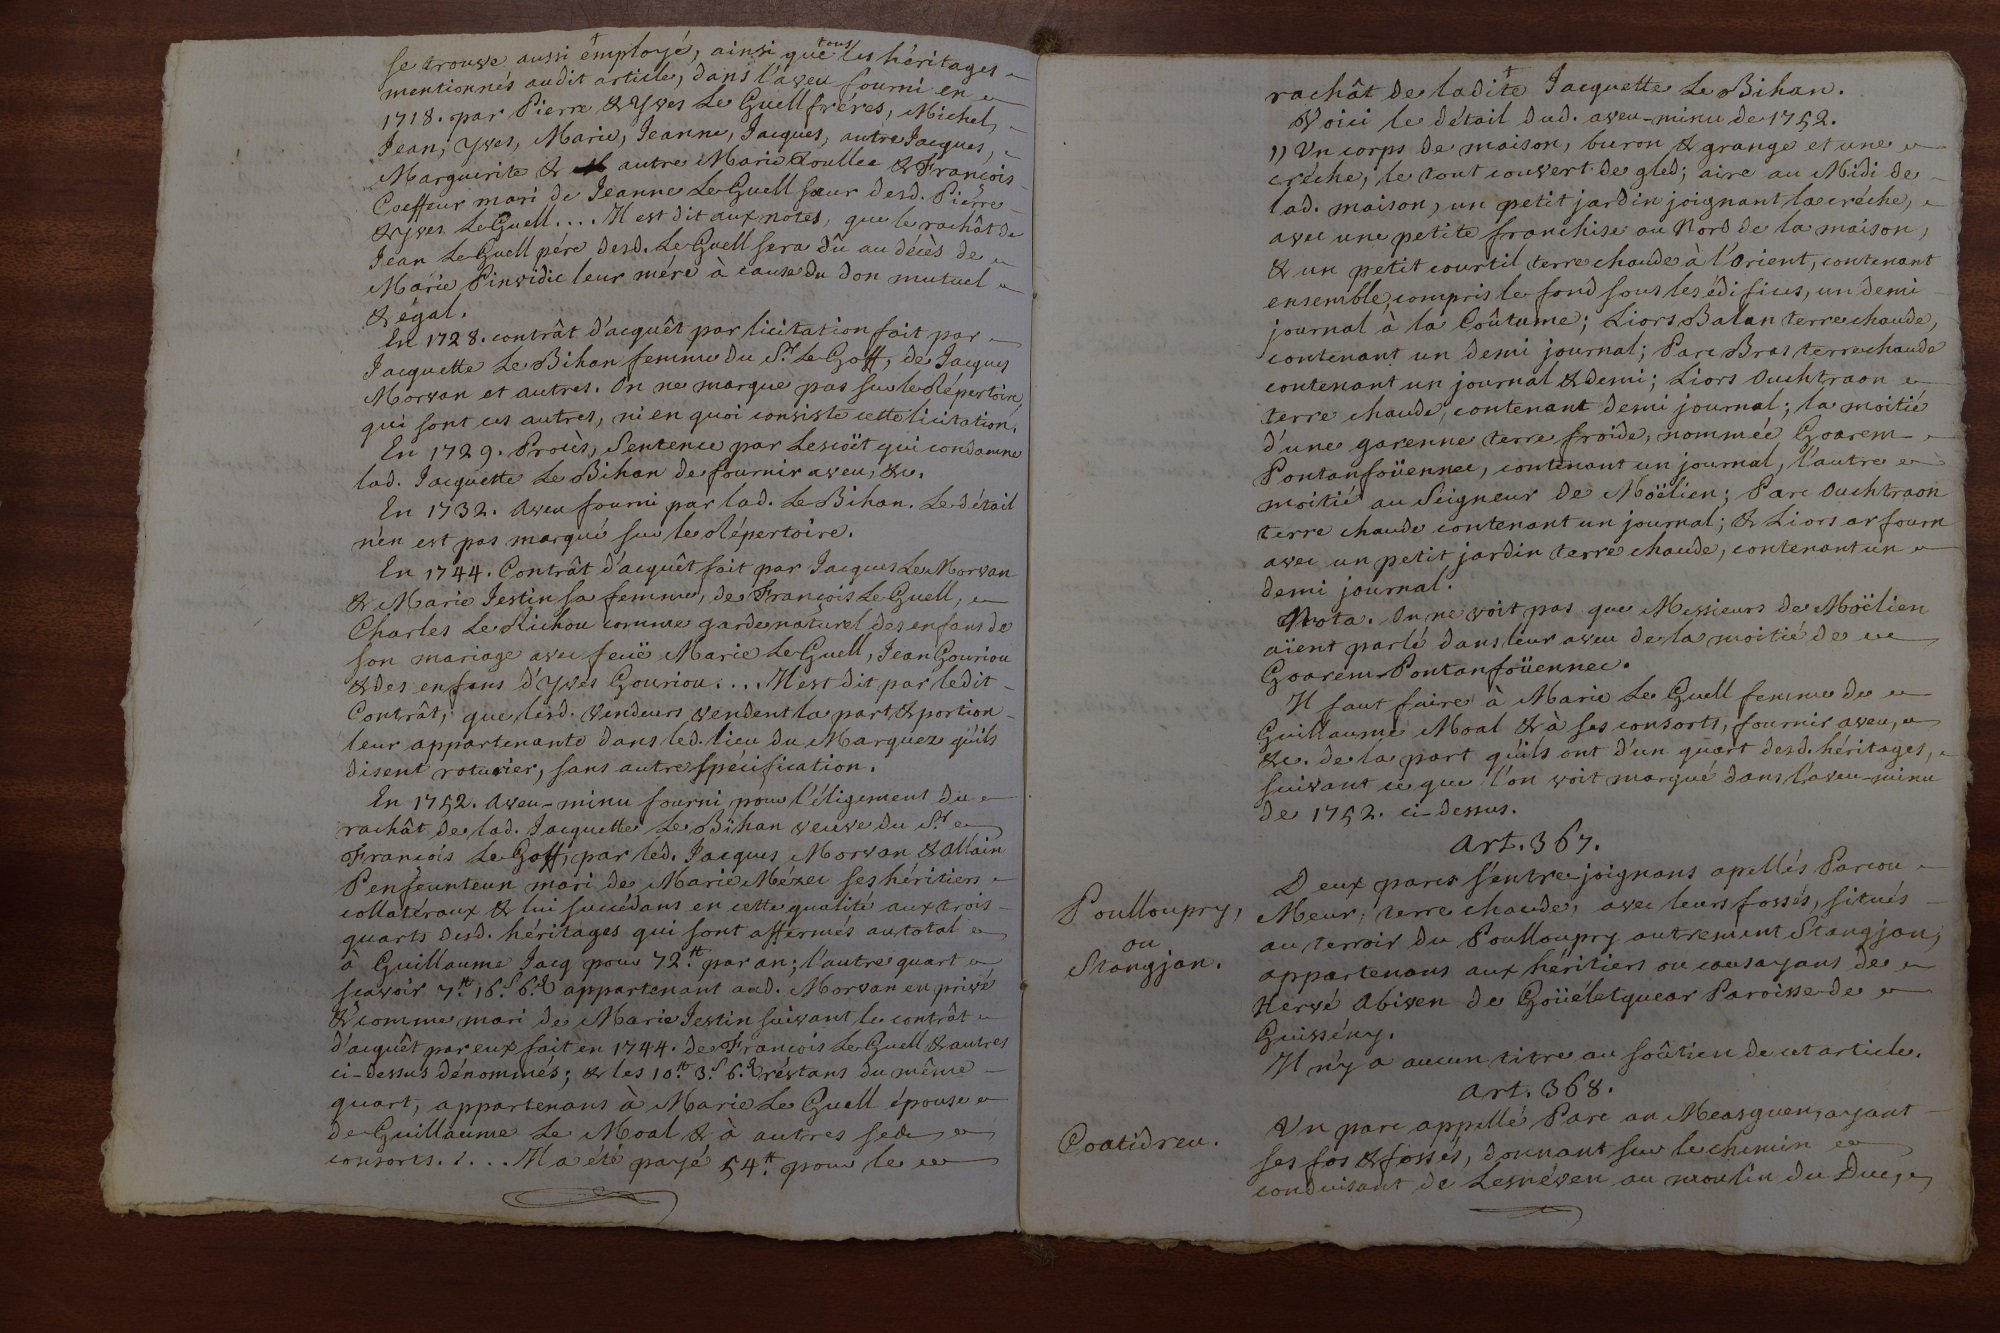 se trouve aussi employé, ainsi que tous les héritages
mentionnés audit article, dans l'aveu fourni en
1718. par Pierre & Yves Le Guell fréres, Michel,
Jean, Yves, Marie, Jeanne, Jacques, autre Jacques,
Marguerite & autre Marie Toullec & François
Coeffeur mari de Jeanne Le Guell sœur desd. Pierre
& Yves Le Guell.... Il est dit aux notes, que le rachât de
Jean Le Guell pére desd. Le Guell sera dû au décès de
Marie Pinvidic leur mére à cause du don mutuel
& égal.
En 1728. contrât d'acquêt par licitation fait par
Jacquette Le Bihan femme du Sr. Le Goff, de Jacques
Morvan et autres. On ne marque pas sur le Répertoire
qui sont ces autres, ni en quoi consiste cette licitation.
En 1729. Procès, Sentence par Lescoët qui condamne
lad. Jacquette Le Bihan de fournir aveu, &c.
En 1732. Aveu fourni par lad. Le Bihan. Le détail
n'en est pas marqué sur le Répertoire.
En 1744. Contrât d'acquêt fait par Jacques Le Morvan
& Marie Jestin sa femme, de François Le Guell,
Charles Le Richou comme garde naturel des enfans de
son mariage avec feuë Marie Le Guell, Jean Gouriou
& des enfans d'Yves Gouriou.... Il est dit par ledit
Contrât, que lesd. vendeurs vendent la part & portion
leur appartenante dans led. lieu du Marquez qu'ils
disent roturier, sans autre spécification.
En 1752. Aveu-minu fourni pour l'éligement du
rachât de lad. Jacquette Le Bihan veuve du Sr.
François Le Goff, par led. Jacques Morvan & Allain
Penfeunteun mari de Marie Mézec ses héritiers
collatéraux & lui succédans en cette qualité aux trois
quarts desd. héritages qui sont affermés au total
à Guillaume Jacq pour 72.tt par an; l'autre quart
scavoir 7.tt 16.s 6.d appartenant aud. Morvan en privé
& comme mari de Marie Jestin suivant le contrât
d'acquêt par eux fait en 1744. de François Le Guell & autres
ci-dessus dénommés; & les 10.tt 3.s 6.d réstans du même
quart, appartenans à Marie Le Guell épouse
de Guillaume Le Moal & à autres ses
consorts.... Il a été payé 54.tt pour le
rachât de ladite Jacquette Le Bihan.
Voici le détail dud. aveu-minu de 1752.
)) Un corps de maison, buron & grange et une
créche, le tout couvert de gled; aire au Midi de
lad. maison, un petit jardin joignant la créche,
avec une petite franchise au Nord de la maison,
& un petit courtil terre chaude à l'Orient, contenant
ensemble, compris le fond sous les édifices, un demi
journal à la Coûtume; Liors Balan terre chaude,
contenant un demi journal; Parc Bras terre chaude
contenant un journal & demi; Liors Ouchtraon
terre chaude, contenant demi journal; la moitié
d'une garenne terre froide, nommée Goarem
Pontanfoüennec, contenant un journal, l'autre
moitié au Seigneur de Moëlien; Parc Ouchtraon
terre chaude contenant un journal; & Liors ar fourn
avec un petit jardin terre chaude, contenant un
demi journal.
Nota. On ne voit pas que Messieurs de Moëlien
aïent parlé dans leur aveu de la moitié de
Goarem-Pontanfoüennec.
Il faut faire à Marie Le Guell femme de
Guillaume Moal & à ses consorts, fournir aveu,
&c. de la part qu'ils ont d'un quart desd. héritages,
suivant ce que l'on voit marqué dans l'aveu-minu
de 1752. ci-dessus.
Art. 367.
Poulloupry,
ou
Stangjan.
Deux parcs s'entrejoignans apellés Parcou
Meur, terre chaude, avec leurs fossés, situés
au terroir du Poulloupry autrement Stangjan,
appartenans aux héritiers ou causayans de
Hervé Abiven de Goüéletquear Paroisse de
Guissény.
Il n'y a aucun titre au soûtien de cet article.
Art. 368.
Coatidreu.
Un parc appellé Parc an Measguen, ayant
ses fos & fossés, donnant sur le chemin
conduisant de Lesnéven au moulin du Duc,